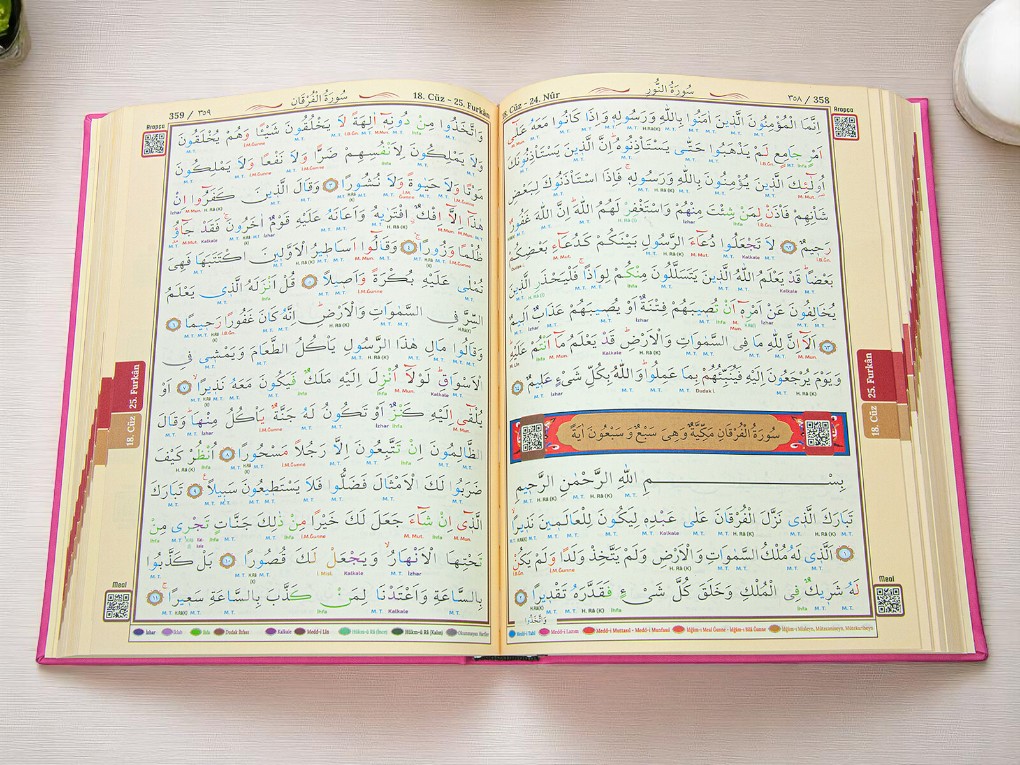 358 / ٣٥٨
سُورَةُ النُّورِ
18. Cüz - 24. Nûr
Arapça
اِنَّمَا الْمُؤْمِنُونَ الَّذٖينَ اٰمَنُوا بِاللّٰهِ وَرَسُولِهٖ وَاِذَا كَانُوا مَعَهُ عَلٰٓى
اَمْرٍ جَامِعٍ لَمْ يَذْهَبُوا حَتّٰى يَسْتَأْذِنُوهُ اِنَّ الَّذٖينَ يَسْتَأْذِنُونَكَ
اُولٰٓئِكَ الَّذٖينَ يُؤْمِنُونَ بِاللّٰهِ وَرَسُولِهٖ فَاِذَا اسْتَأْذَنُوكَ لِبَعْضِ
شَأْنِهِمْ فَأْذَنْ لِمَنْ شِئْتَ مِنْهُمْ وَاسْتَغْفِرْ لَهُمُ اللّٰهَ اِنَّ اللّٰهَ غَفُورٌ
رَحٖيمٌ ٦٢ لَا تَجْعَلُوا دُعَٓاءَ الرَّسُولِ بَيْنَكُمْ كَدُعَٓاءِ بَعْضِكُمْ
بَعْضًا قَدْ يَعْلَمُ اللّٰهُ الَّذٖينَ يَتَسَلَّلُونَ مِنْكُمْ لِوَاذًا فَلْيَحْذَرِ الَّذٖينَ
يُخَالِفُونَ عَنْ اَمْرِهٖٓ اَنْ تُصٖيبَهُمْ فِتْنَةٌ اَوْ يُصٖيبَهُمْ عَذَابٌ اَلٖيمٌ
٦٣ اَلَٓا اِنَّ لِلّٰهِ مَا فِى السَّمٰوَاتِ وَالْاَرْضِ قَدْ يَعْلَمُ مَٓا اَنْتُمْ عَلَيْهِ
وَيَوْمَ يُرْجَعُونَ اِلَيْهِ فَيُنَبِّئُهُمْ بِمَا عَمِلُوا وَاللّٰهُ بِكُلِّ شَىْءٍ عَلٖيمٌ ٦٤
سُورَةُ الْفُرْقَانِ مَكِّيَّةٌ وَهِىَ سَبْعٌ وَ سَبْعُونَ اٰيَةً
بِسْمِ اللّٰهِ الرَّحْمٰنِ الرَّحٖيمِ
تَبَارَكَ الَّذٖى نَزَّلَ الْفُرْقَانَ عَلٰى عَبْدِهٖ لِيَكُونَ لِلْعَالَمٖينَ نَذٖيرًا
١ اَلَّذٖى لَهُ مُلْكُ السَّمٰوَاتِ وَالْاَرْضِ وَلَمْ يَتَّخِذْ وَلَدًا وَلَمْ يَكُنْ
لَهُ شَرٖيكٌ فِى الْمُلْكِ وَخَلَقَ كُلَّ شَىْءٍ فَقَدَّرَهُ تَقْدٖيرًا ٢
وَاتَّخَذُوا
25. Furkân
18. Cüz
Meal
Medd-i Tabî Medd-i Lazım Medd-i Muttasıl - Medd-i Munfasıl İdğâm-ı Meal Ğunne - İdğâm-ı Bilâ Ğunne
359 / ٣٥٩
سُورَةُ الْفُرْقَانِ
18. Cüz - 25. Furkân
Arapça
وَاتَّخَذُوا مِنْ دُونِهٖٓ اٰلِهَةً لَا يَخْلُقُونَ شَيْئًا وَهُمْ يُخْلَقُونَ
وَلَا يَمْلِكُونَ لِاَنْفُسِهِمْ ضَرًّا وَلَا نَفْعًا وَلَا يَمْلِكُونَ
مَوْتًا وَلَا حَيٰوةً وَلَا نُشُورًا ٣ وَقَالَ الَّذٖينَ كَفَرُٓوا اِنْ
هٰذَٓا اِلَّٓا اِفْكٌ افْتَرٰيهُ وَاَعَانَهُ عَلَيْهِ قَوْمٌ اٰخَرُونَ فَقَدْ جَٓاؤُ
ظُلْمًا وَزُورًا ٤ وَقَالُٓوا اَسَاطٖيرُ الْاَوَّلٖينَ اكْتَتَبَهَا فَهِىَ
تُمْلٰى عَلَيْهِ بُكْرَةً وَاَصٖيلًا ٥ قُلْ اَنْزَلَهُ الَّذٖى يَعْلَمُ
السِّرَّ فِى السَّمٰوَاتِ وَالْاَرْضِ اِنَّهُ كَانَ غَفُورًا رَحٖيمًا ٦
وَقَالُوا مَالِ هٰذَا الرَّسُولِ يَأْكُلُ الطَّعَامَ وَيَمْشٖى فِى
الْاَسْوَاقِ لَوْلَٓا اُنْزِلَ اِلَيْهِ مَلَكٌ فَيَكُونَ مَعَهُ نَذٖيرًا ٧ اَوْ
يُلْقٰٓى اِلَيْهِ كَنْزٌ اَوْ تَكُونُ لَهُ جَنَّةٌ يَأْكُلُ مِنْهَا وَقَالَ
الظَّالِمُونَ اِنْ تَتَّبِعُونَ اِلَّا رَجُلًا مَسْحُورًا ٨ اُنْظُرْ كَيْفَ
ضَرَبُوا لَكَ الْاَمْثَالَ فَضَلُّوا فَلَا يَسْتَطٖيعُونَ سَبٖيلًا ٩ تَبَارَكَ
الَّذٖٓى اِنْ شَٓاءَ جَعَلَ لَكَ خَيْرًا مِنْ ذٰلِكَ جَنَّاتٍ تَجْرٖى مِنْ
تَحْتِهَا الْاَنْهَارُ وَيَجْعَلْ لَكَ قُصُورًا ١٠ بَلْ كَذَّبُوا
بِالسَّاعَةِ وَاَعْتَدْنَا لِمَنْ كَذَّبَ بِالسَّاعَةِ سَعٖيرًا ١١
25. Furkân
18. Cüz
Meal
İzhar İklab İhfa Dudak İhfası Kalkale Medd-i Lîn Hükm-ü Râ (İnce) Hükm-ü Râ (Kalın) Okunmayan Harfler